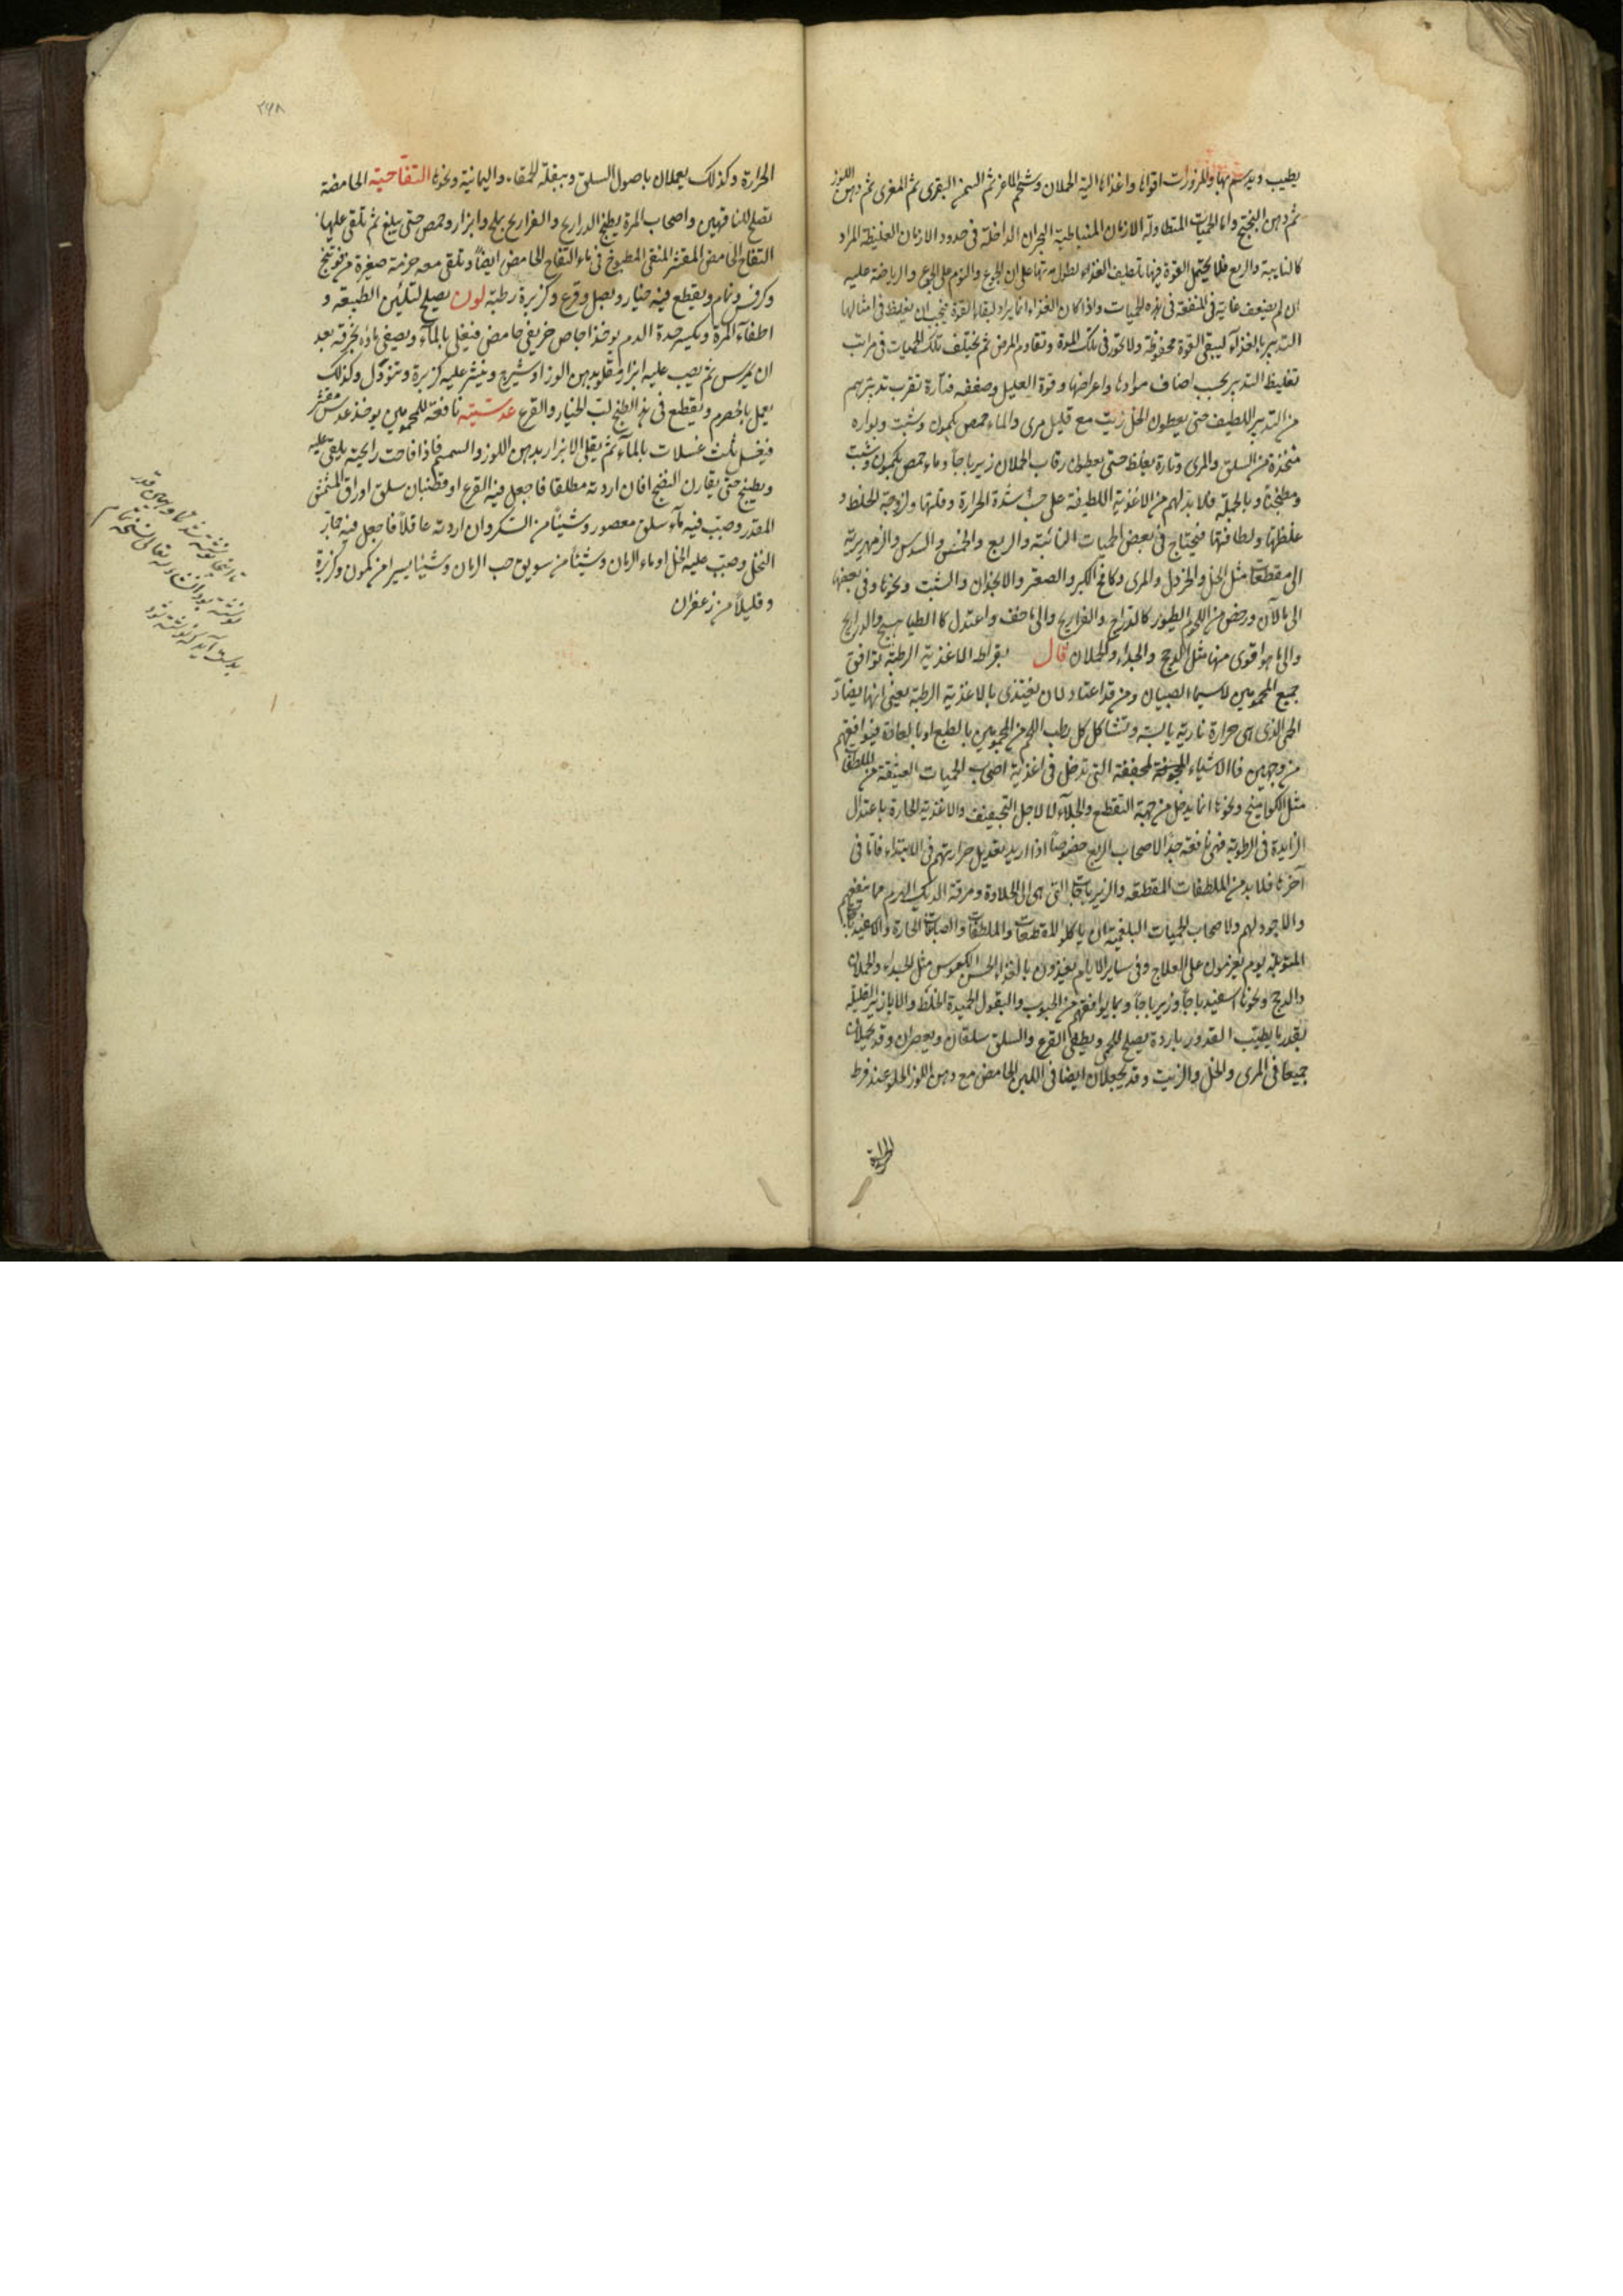 يطيب ويدسم بها وللمزورات اقواها واغذاها الية الحملان وشحم الماعز ثم السمن البقرى ثم المعزى ثم دهن اللوز
ثم دهن البنفسج واما الحميات المتطاولة الازمان المتباطية البحران الداخلة فى حدود الازمان الغليظة المواد
كالنايبة والربع فلا يحتمل القوة فيها تلطيف الغذاء لطول مدتها على ان الجوع والنوم على الجوع والرياضة عليه
ان لم يضعف غاية فى المنفعة فى هذه الحميات واذا كان الغذاء انما يراد لبقاء القوة فيجب ان يغلظ فى امثالها
التدبير بالغذاء ليبقى القوة محفوظة ولا تخور فى تلك المدة وتقاوم المرض ثم يختلف تلك الحميات فى مراتب
تغليظ التدبير بحسب اصناف موادها واعراضها وقوة العليل وضعفه فتارة تقرب تدبيرهم
من التدبير اللطيف حتى يعطون الخل زيت مع قليل مرى والماء حمص بكمون وشبت وبوارد
متخذة من السلق والمرى وتارة يغلظ حتى يعطون رقاب الحملان زيرباجا وماء حمص بكمون وشبت
ومطجنا وبالجملة فلا بد لهم من الاغذية اللطيفة على حسب شدة الحرارة وقلتها ولزوجة الخلط و
غلظها ولطافتها فيحتاج فى بعض الحميات النائبة والربع والخمس والسدس والزمهريرية
الى مقطعات مثل الخل والخردل والمرى وكامخ الكبر والصعتر والانجدان والشبت ونحوها وفى بعضها
الى مالان ورخص من اللحوم الطيور كالدراج والفراريج والى ما خف واعتدل كالطياهيج والدراريج
والى ما هو اقوى منها مثل الدجج والجداء والحملان قال بقراط الاغذية الرطبة توافق
جميع المحمومين لا سيما الصبيان ومن قد اعتاد لان يغتذى بالاغذية الرطبة يعنى انها يضاد
الحمى الذى هى حرارة نارية يابسة وتشاكل كل رطب اللحم من المحمومين بالطبع او بالعادة فيوافقهم
من وجهين فاما الاشياء المجففة التى تدخل فى اغذية اصحاب الحميات العتيقة من الملطفات
مثل الكواميخ ونحوها انما يدخل من جهة التقطيع والجلاء لا لاجل التجفيف والاغذية الحارة باعتدال
الزايدة فى الرطوبة فهى نافعة جدا لاصحاب الربع خصوصا اذا اريد تعديل حرارتهم فى الابتداء فاما فى
آخرها فلا بد من الملطفات المقطعة والزيرباجات التى هى الى الحلاوة ومرقة الديك الهرم مما ينفعهم
والاجود لهم ولاصحاب الحميات البلغمية ان ياكلوا المقطعات والملطفات والصباغات الحارة
المتوبلة يوم يعزمون على العلاج وفى ساير الايام يغذون بالغذاء الحسن الكيموس مثل الجداء والحملان
والدجج ونحوها اسفيدباجا وزيرباجا وبما يوافقهم من الحبوب والبقول الحميدة الخلط والابازير القليلة
بقدر ما يطيب القدور باردة يصلح للحمى ويطفى القرع والسلق سلقان ويعصران وقد يجعلان
جميعا فى المرى والخل والزيت وقد يجعلان ايضا فى اللبن الحامض مع دهن اللوز الحلو عند فرط
الحرارة
٢٩٨
الحرارة وكذلك يعملان باصول السلق وببقلة الحمقاء واليمانية ونحوها التفاحية الحامضة
تصلح للناقهين واصحاب المرة يطبخ الدراريج والفراريج بملح وابزار وحمص حتى يبلغ ثم تلقى عليها
التفاح الحامض المقشر المنقى المطبوخ فى ماء التفاح الحامض ايضا وتلقى معه حزمة صغيرة من فوتنج
وكرفس ونمام ويقطع فيه خيار وبصل وقرع وكزبرة رطبة لون يصلح لتليين الطبيعة و
اطفاء المرة وتكسير حدة الدم يوخذ اجاص خريفى حامض فيغلى بالماء ويصفى ماؤه بخرقة بعد
ان يمرس ثم يصب عليه ابزار مقلو بدهن الوز او شيرج وينثر عليه كزبرة وتنوول وكذلك
يعمل بالحصرم ويقطع فى هذا الطبخ لب الخيار والقرع عدسية نافعة للمحمومين يوخذ عدس مقشر
فيغسل ثلث غسلات بالماء ثم يقلى الابزار بدهن اللوز والسمسم فاذا فاحت رايحته يلقى عليه
ويطبخ حتى يقارن النضج فان اردته مطلقا فاجعل فيه القرع او قضبان سلق او راق المشمش
المقدر وصب فيه ماء سلق معصور وشيئا من السكر وان اردته عاقلا فاجعل فيه جمار
النخل وصب عليه الخل او ماء الرمان وشيئا من سويق حب الرمان وشيئا يسيرا من كمون وكزبرة
وقليلا من زعفران
تا اينجا نوشته شد و همين قدر
نوشته بود انشاء الله تعالى نسخه تمام
بدست آيد كه نوشته شود